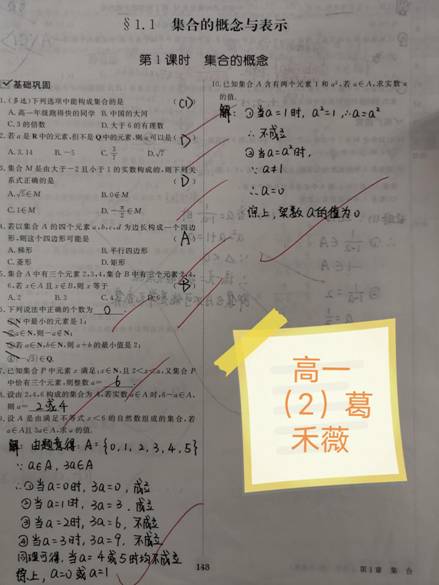 §1.1 集合的概念与表示
第1课时 集合的概念
基础巩固
1.(多选)下列选项中能构成集合的是 (CD)
A.高一年级跑得快的同学 B.中国的大河
C.3的倍数 D.大于6的有理数
2.若a是R中的元素,但不是Q中的元素,则a可以是( D )
A.3.14 B.-5 C.3/7 D.√7
3.集合M是由大于-2且小于1的实数构成的,则下列关
系式正确的是 ( D )
A.√5∈M B.0∉M
C.1∈M D.-π/2∈M
4.若以集合A的四个元素a,b,c,d为边长构成一个四边
形,则这个四边形可能是 ( A )
A.梯形 B.平行四边形
C.菱形 D.矩形
5.集合A中有三个元素2,3,4,集合B中有三个元素2,4,
6,若x∈A且x∉B,则x等于 ( B )
A.2 B.3 C.4
6.下列说法中正确的个数为 0 .
N中最小的元素是1;
若a∈N,b∈N,则a+b的最小值是2;
7.已知集合P中元素x满足:x∈N,且2<x<a,又集合P
中恰有三个元素,则整数a= 6 .
8.设由2,4,6构成的集合为A,若实数a∈A时,6-a∈A,
则a= 2或4
9.设A是由满足不等式x<6的自然数组成的集合,若
a∈A且3a∈A,求a的值.
解 由题意得:A={0,1,2,3,4,5}
∵a∈A,3a∈A
∴①当a=0时,3a=0,成立
②当a=1时,3a=3.成立
③当a=2时,3a=6,不成立
④当a=3时,3a=9,不成立
同理可得,当a=4或5时均不成立
综上,a=0或a=1
10.已知集合A含有两个元素1和a²,若a∈A,求实数a
的值.
解:①当a=1时,a²=1,∴a=a²
∴不成立
②当a=a²时,
∵a≠1
∴a=0
综上,实数a的值为0
高一
(2)葛
禾薇
143
第1章 集合